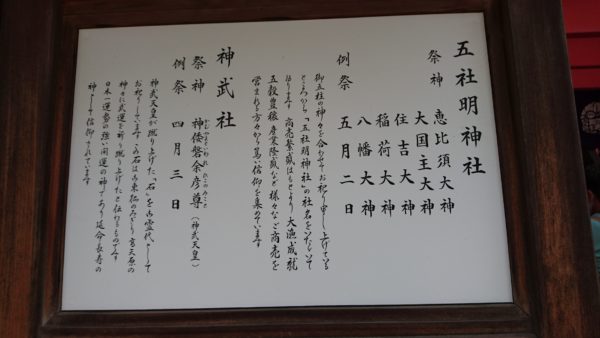 五社明神社
祭神 恵比須大神
大国主大神
住吉大神
稲荷大神
八幡大神
例祭 五月二日
御五柱の神々を合わせてお祀り申し上げている
ところから「五社明神社」の社名をいただいて
おります 商売繁盛はもとより大漁成就
五穀豊穣 産業隆盛など様々なご商売を
営まれる方々から篤い信仰を集めています
神武社
祭神 神倭磐余彦尊（神武天皇）
かむやまといわれひこのみこと
例祭 四月三日
神武天皇が蹴り上げた「石」を御霊代として
お祀りしています この石は御東征のみぎり高天原の
神々に武運を祈り蹴り上げたと伝わるものです
日本一運勢の強い開運の神であり延命長寿の
神として信仰されています